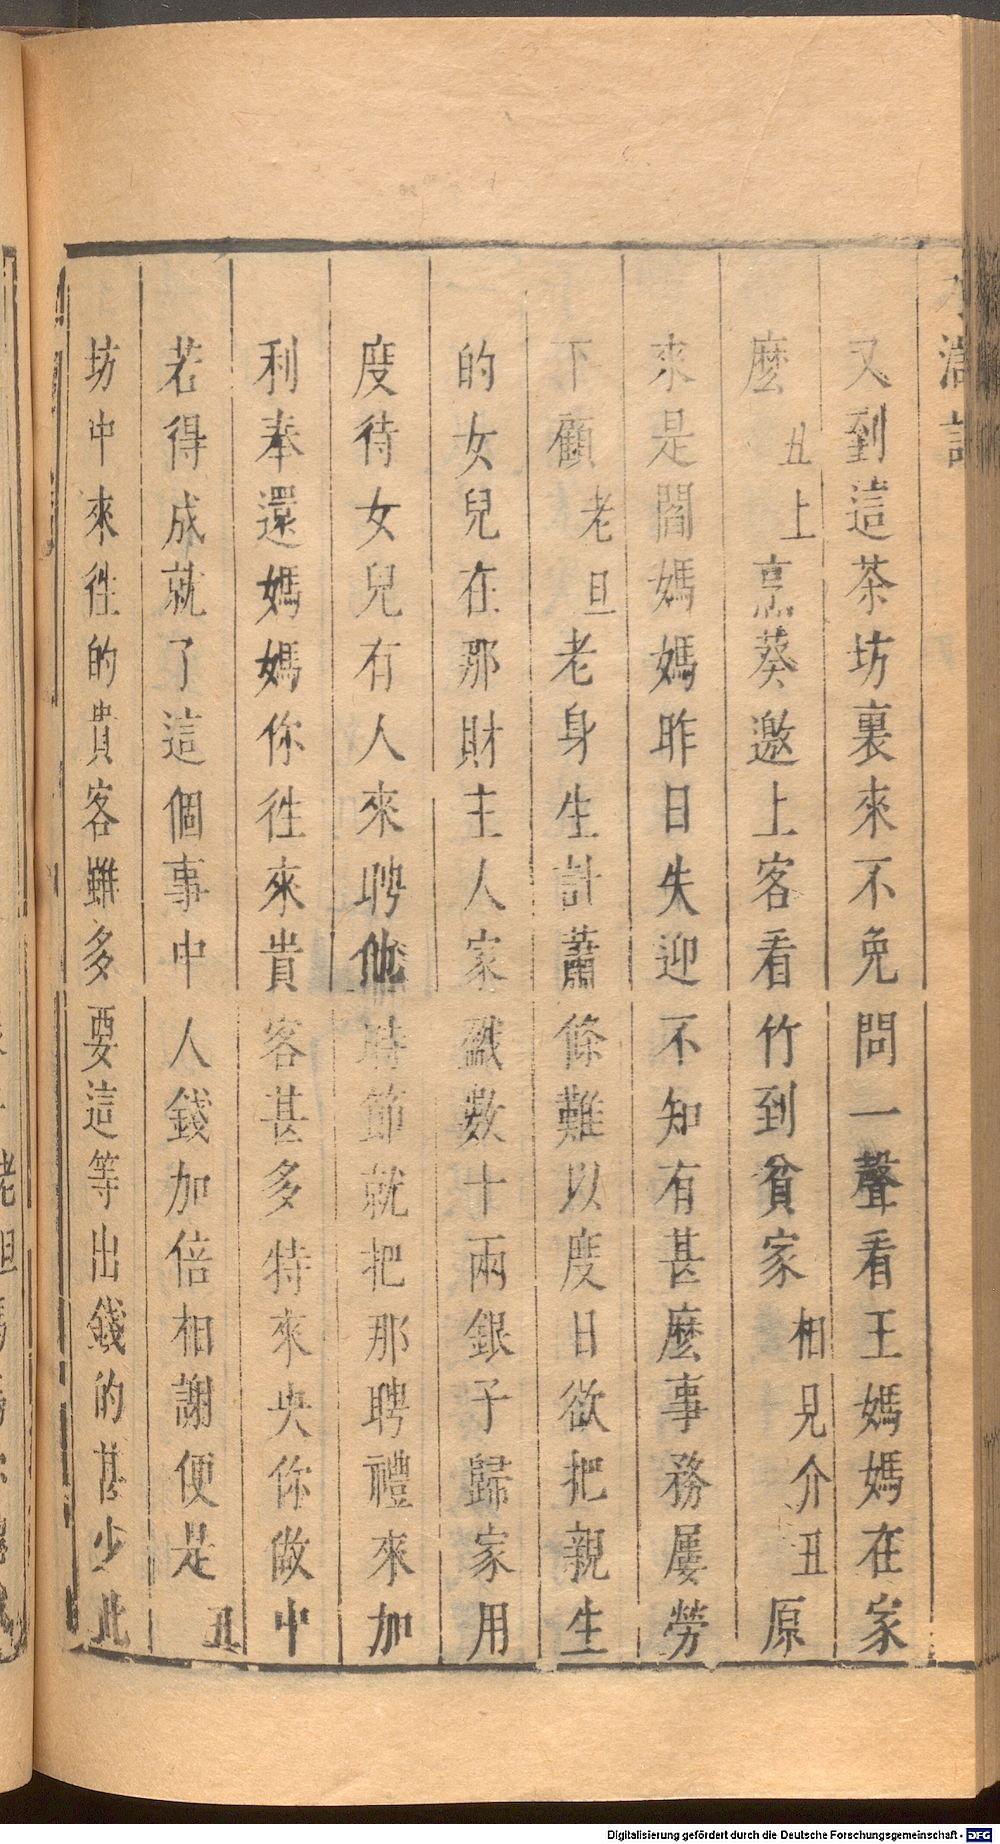 水滸記
又到這茶坊裏來不免問一聲看王媽媽在家
麼丑上烹葵邀上客看竹到貧家相見介丑原
來是閻媽媽昨日失迎不知有甚麼事務屢勞
下顧老旦老身生計蕭條難以度日欲把親生
的女兒在那財主人家戤數十兩銀子歸家用
度待女兒有人來聘他時節就把那聘禮來加
利奉還媽媽你徃來貴客甚多特來央你做中
若得成就了這個事中人錢加倍相謝便是丑
坊中來徃的貴客雖多要這等出錢的甚少此
Digitalisierung gefördert durch die Deutsche Forschungsgemeinschaft - DFG